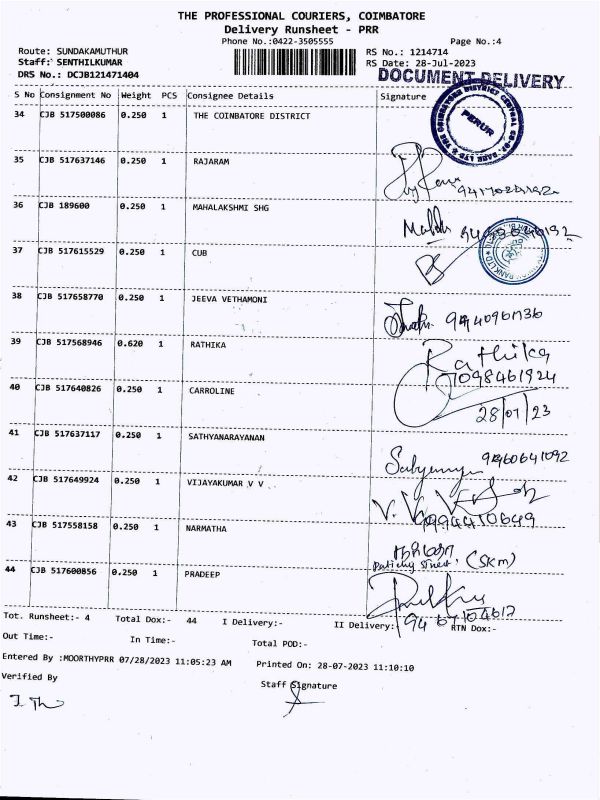 THE PROFESSIONAL COURIERS, COIMBATORE
Delivery Runsheet - PRR
Phone No.:0422-3505555 Page No.:4
Route: SUNDAKAMUTHUR RS No.: 1214714
Staff: SENTHILKUMAR RS Date: 28-Jul-2023
DRS No.: DCJB121471404 DOCUMENT DELIVERY
S No Consignment No Weight PCS Consignee Details Signature
34 CJB 517500086 0.250 1 THE COINBATORE DISTRICT
PERUR
35 CJB 517637146 0.250 1 RAJARAM
36 CJB 189600 0.250 1 MAHALAKSHMI SHG
37 CJB 517615529 0.250 1 CUB
38 CJB 517658770 0.250 1 JEEVA VETHAMONI
39 CJB 517568946 0.620 1 RATHIKA
Rathika
7098461924
40 CJB 517640826 0.250 1 CARROLINE
28/07/23
41 CJB 517637117 0.250 1 SATHYANARAYANAN
42 CJB 517649924 0.250 1 VIJAYAKUMAR V V
9994410649
43 CJB 517558158 0.250 1 NARMATHA
(SKM)
44 CJB 517600856 0.250 1 PRADEEP
Tot. Runsheet:- 4 Total Dox:- 44 I Delivery:- II Delivery:- RTN Dox:-
Out Time:- In Time:- Total POD:-
Entered By :MOORTHYPRR 07/28/2023 11:05:23 AM Printed On: 28-07-2023 11:10:10
Verified By Staff Signature